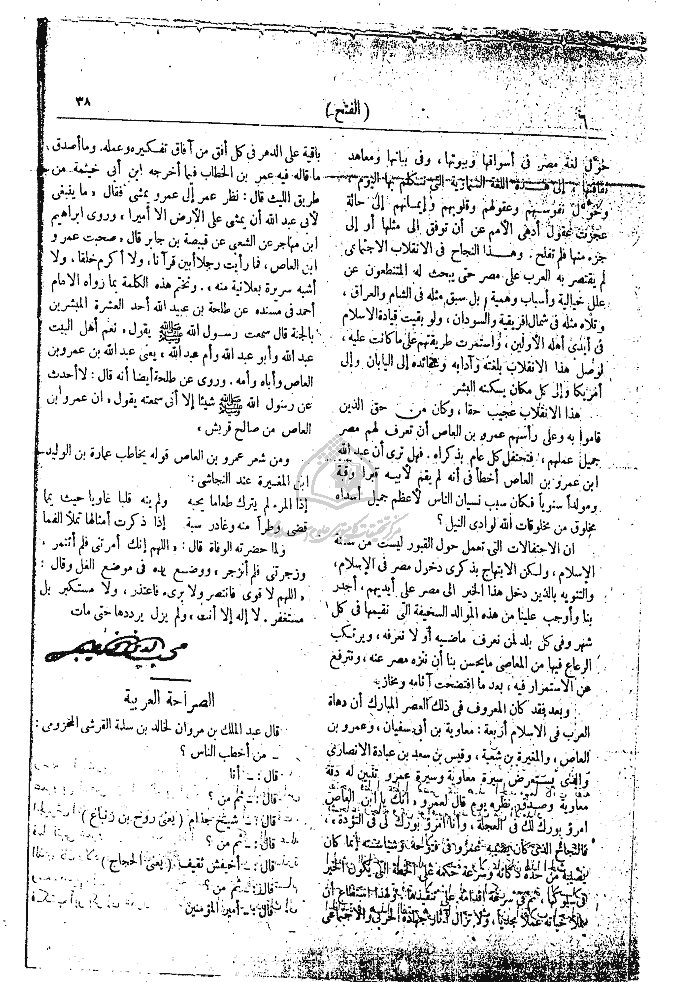 ٦
(الفتح)
٣٨
حوّل لغة مصر فى أسواقها وبيوتها، وفى بيانها ومعاهد
ثقافتها إلى هذه اللغة المضرية التى نتكلم بها اليوم،
وحوّل نفوسهم وعقولهم وقلوبهم وإيمانهم إلى حالة
عجزت عقول أدهى الأمم عن أن توفق إلى مثلها أو إلى
جزء منها فلم تفلح. وهذا النجاح فى الانقلاب الاجتماعى
لم يقتصر به العرب على مصر حتى يبحث له المتنطعون عن
علل خيالية وأسباب وهمية، بل سبق مثله فى الشام والعراق،
وتلاه مثله فى شمال افريقية والسودان، ولو بقيت قيادة الاسلام
فى أيدى أهله الأولين، واستمرت طريقتهم على ما كانت عليه،
لوصل هذا الانقلاب بلغته وآدابه وعقائده إلى اليابان وإلى
أمريكا وإلى كل مكان يسكنه البشر
هذا الانقلاب عجيب حقا، وكان من حق الذين
قاموا به وعلى رأسهم عمرو بن العاص أن تعرف لهم مصر
جميل عملهم، فتحتفل كل عام بذكراه. فهل ترى أن عبد الله
ابن عمرو بن العاص أخطأ فى أنه لم يقم لأبيه قبرا وقبة
ومولداً سنوياً فكان سبب نسيان الناس لأعظم جميل أسداه
مخلوق من مخلوقات الله لوادى النيل؟
ان الاحتفالات التى تعمل حول القبور ليست من سنة
الإسلام، ولكن الابتهاج بذكرى دخول مصر فى الإسلام،
والتنويه بالذين دخل هذا الخير الى مصر على أيديهم، أجدر
بنا وأوجب علينا من هذه الموالد السخيفة التى نقيمها فى كل
شهر وفى كل بلد لمن نعرف ماضيه أو لا نعرفه، ويرتكب
الرعاع فيها من المعاصى ما يحسن بنا أن ننزه مصر عنه، ونترفع
عن الاستمرار فيه، بعد ما افتضحت آثامه ومخازيه
وبعد فقد كان المعروف فى ذلك العصر المبارك أن دهاة
العرب فى الاسلام أربعة: معاوية بن أبى سفيان، وعمرو بن
العاص، والمغيرة بن شعبة، وقيس بن سعد بن عبادة الانصارى
والذى يستعرض سيرة معاوية وسيرة عمرو تتبين له دقة
معاوية وصدق نظره يوم قال لعمرو: انك يا ابن العاص
امرؤ بورك لك فى العجلة، وأنا امرؤ بورك لى فى التؤدة،
باقية على الدهر فى كل أفق من آفاق تفكيره وعمله. وما أصدق
ما قاله فيه عمر بن الخطاب فيما أخرجه ابن أبى خيثمة من
طريق الليث قال: نظر عمر إلى عمرو يمشى فقال «ما ينبغى
لأبى عبد الله أن يمشى على الأرض الا أميرا» وروى ابراهيم
ابن مهاجر عن الشعبى عن قبيصة بن جابر قال «صحبت عمرو
ابن العاص، فما رأيت رجلا أبين قرآنا، ولا أكرم خلقا، ولا
أشبه سريرة بعلانية منه». ونختم هذه الكلمة بما رواه الامام
أحمد فى مسنده عن طلحة بن عبيد الله أحد العشرة المبشرين
بالجنة قال سمعت رسول الله ﷺ يقول «نعم أهل البيت
عبد الله وأبو عبد الله وأم عبد الله» يعنى عبد الله بن عمرو بن
العاص وأباه وأمه. وروى عن طلحة أيضا أنه قال: لا أحدث
عن رسول الله ﷺ شيئا إلا أنى سمعته يقول «ان عمرو ابن
العاص من صالح قريش»
ومن شعر عمرو بن العاص قوله يخاطب عمارة بن الوليد
ابن المغيرة عند النجاشى:
إذا المرء لم يترك طعاما يحبه ولم ينه قلبا غاويا حيث يما
قضى وطرا منه وغادر سبة إذا ذكرت أمثالها تملأ الفما
ولما حضرته الوفاة قال: «اللهم إنك أمرتنى فلم أئتمر،
وزجرتنى فلم أنزجر» ووضع يده فى موضع الغل وقال:
«اللهم لا قوى فانتصر ولا برىء فاعتذر، ولا مستكبر بل
مستغفر. لا إله إلا أنت» ولم يزل يرددها حتى مات
محب الدين الخطيب
الصراحة العربية
قال عبد الملك بن مروان لخالد بن سلمة القرشى المخزومى:
ـ من أخطب الناس؟
قال: ـ أنا
قال: ـ ثم من؟
قال: ـ شيخ جذام (يعنى روح بن زنباع)
قال: ـ ثم من؟
قال: ـ أخيفش ثقيف (يعنى الحجاج)
قال: ـ ثم من؟
قال: ـ أمير المؤمنين